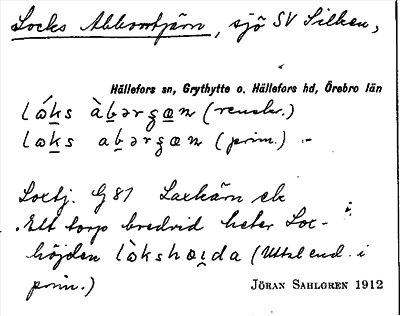 Locks Abborrtjärn, sjö SV Silken,
Hällefors sn, Grythytte o. Hällefors hd, Örebro län
(renskr.)
(prim.)
Loxtj. G 81 Laxkärn ek
Ett torp bredvid heter Lox-
höjden (Uttal end. i
prim.)
JÖRAN SAHLGREN 1912